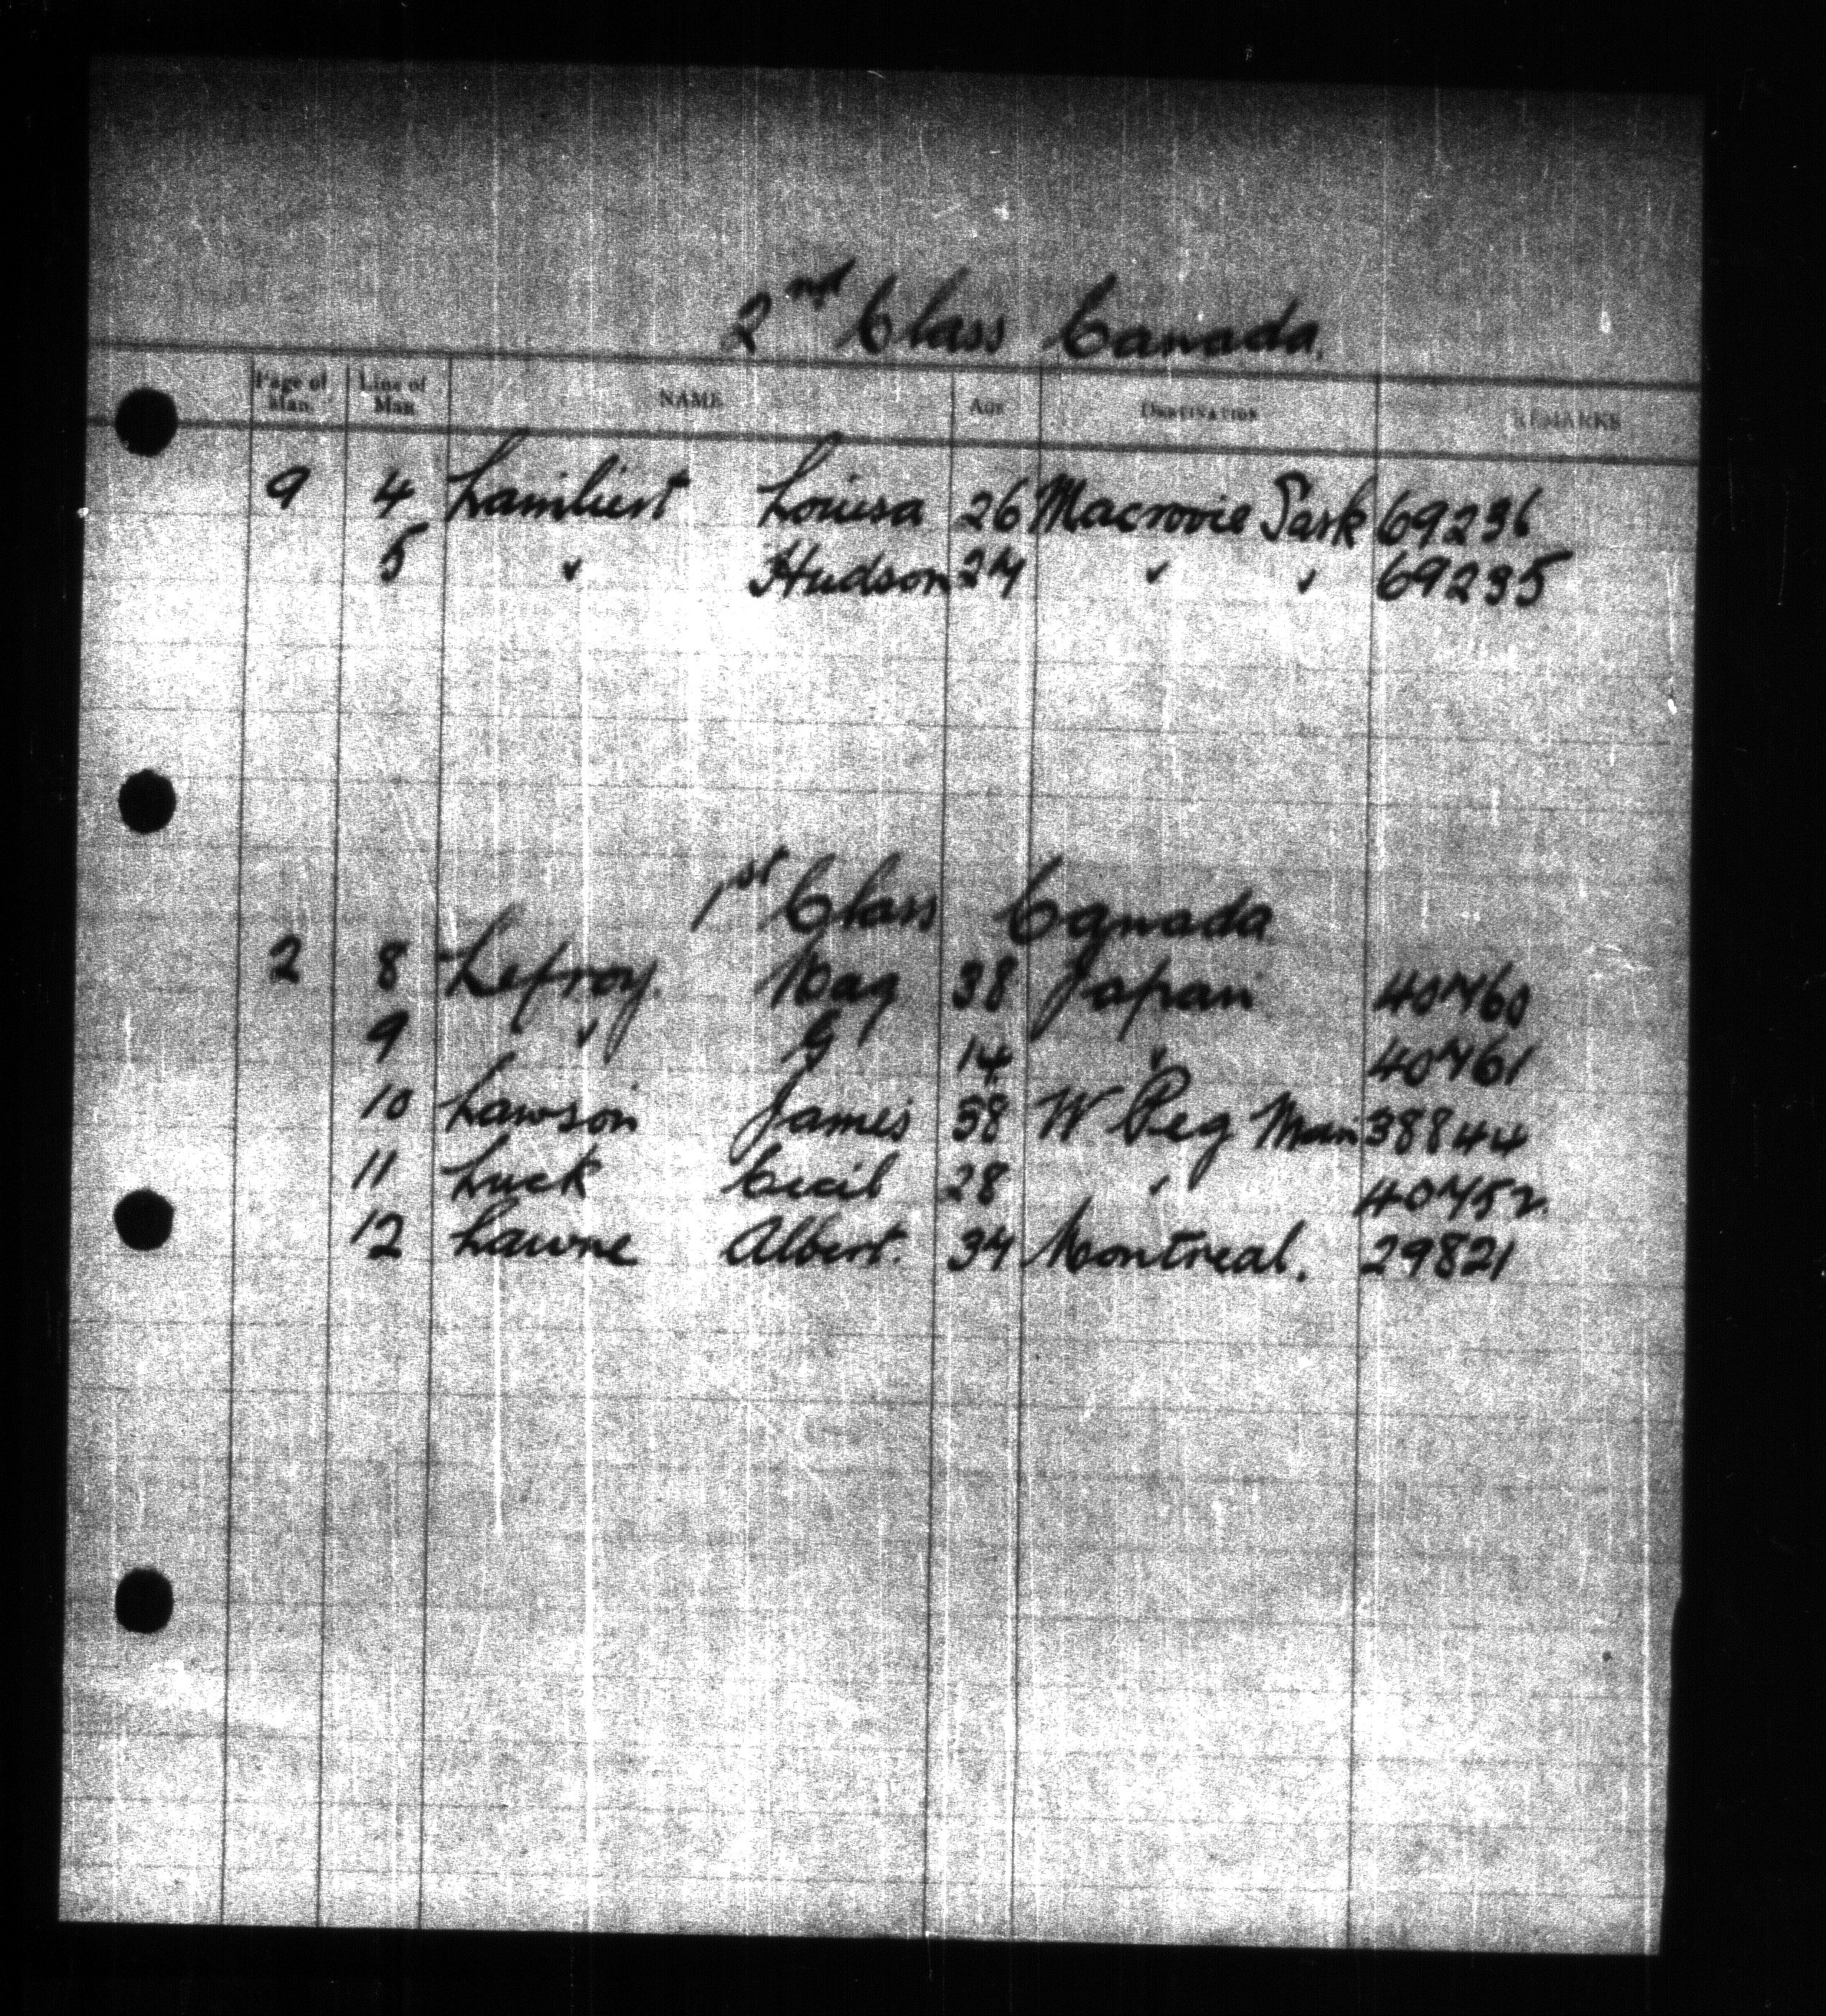 2nd Class Canada.
Page of Man. Line of Man NAME AGE DESTINATION REMARKS
9 4 Lambert Louisa 26 Macrorie Sask 69236
5 " Hudson 24 " " 69235
1st Class Canada
2 8 Lefroy. May 38 Japan 40760
9 " G 14 " 40761
10 Lawson James 38 W Peg Man 38844
11 Luck Cecil 28 " 40752.
12 Lawne Albert. 34 Montreal. 29821